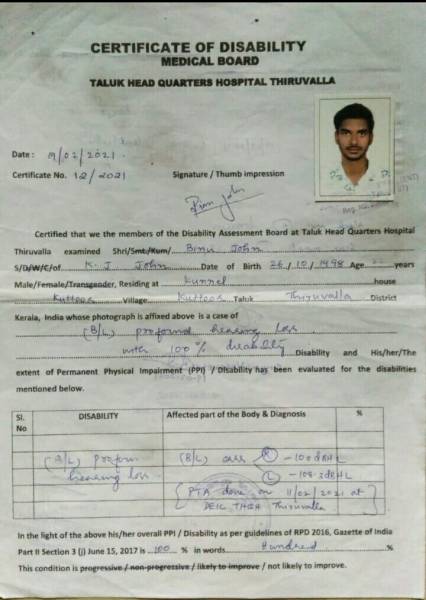 CERTIFICATE OF DISABILITY
MEDICAL BOARD
TALUK HEAD QUARTERS HOSPITAL THIRUVALLA
Date : 19/02/2021.
Certificate No. 12/2021 Signature / Thumb impression
Certified that we the members of the Disability Assessment Board at Taluk Head Quarters Hospital
Thiruvalla examined Shri/Smt./Kum/ Binu John
S/D/W/C/of K. J John Date of Birth 26/10/1998 Age years
Male/Female/Transgender, Residing at Kunnel house
Kuttoor Village Kuttoor Taluk Thiruvalla District
Kerala, India whose photograph is affixed above is a case of
(B/L) profound hearing loss
with 100 % disability Disability and His/her/The
extent of Permanent Physical Impairment (PPI) / Disability has been evaluated for the disabilities
mentioned below.
Sl. No DISABILITY Affected part of the Body & Diagnosis %
(B/L) profoun (B/L) ears R - 100dBHL
hearing loss. L - 108.3dBHL
[PTA done on 11/02/2021 at
DEIC THQH Thiruvalla
In the light of the above his/her overall PPI / Disability as per guidelines of RPD 2016, Gazette of India
Part II Section 3 (i) June 15, 2017 is 100 % in words Hundred %
This condition is progressive / non-progressive / likely to improve / not likely to improve.